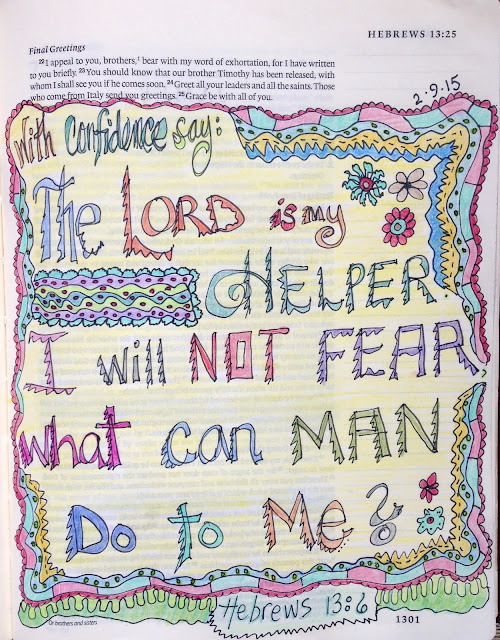 HEBREWS 13:25
Final Greetings
22 I appeal to you, brothers,1 bear with my word of exhortation, for I have written
to you briefly. 23 You should know that our brother Timothy has been released, with
whom I shall see you if he comes soon. 24 Greet all your leaders and all the saints. Those
who come from Italy send you greetings. 25 Grace be with all of you.
2.9.15
With Confidence say:
The LORD is my
HELPER
I will NOT FEAR
what can MAN
Do to Me?
Hebrews 13:6
Or brothers and sisters
1301